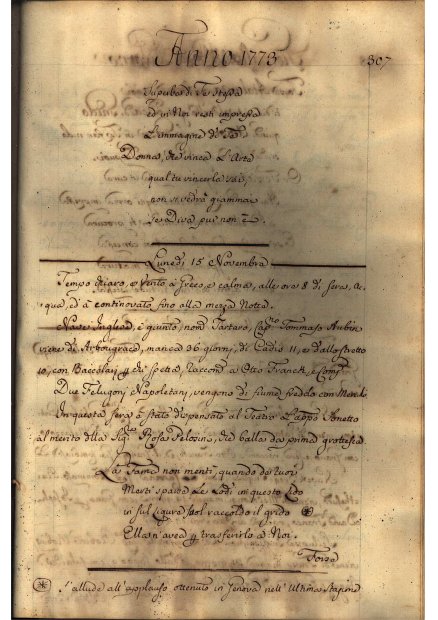 Anno 1773
307
Superba di Te stessa
ed in Noi resti impressa
L'immagine di
Donna, che vince L'Arte
qual tu vincerla sai,
non si vedrà giammai
se Diva pur non è.
Lunedì 15 Novembre
Tempo chiaro, e Vento à Greco, e calma, alle ore 8 di sera, Ac-
qua, ed à continovato fino alla mezza Notte.
Nave Inglese, è giunta, nom. Tartaro, Cap.no Tommaso Aubin
viene di manca 36 giorni, di Cadis 11, e dallo stretto
10, con Baccalari, chi spetta, Raccomd. a Otto Franck, e Comp.
Due Feluconi Napoletani, vengono di fiume freddo con Merchi
In questa sera è stato dispensato al Teatro L'appo Sonetto
al merito della Sig.ra Rosa Pelosino, che balla da prima grottesca
La Fama non mentì, quando de tuoi
Merti sparse Le Lodi in questo Lido
in sul Ligure sol raccoldo il grido
Ella n'avea trasferirlo a Noi.
Forza
s'allude all'applauso ottenuto in Genova nell'Ultima Stagione